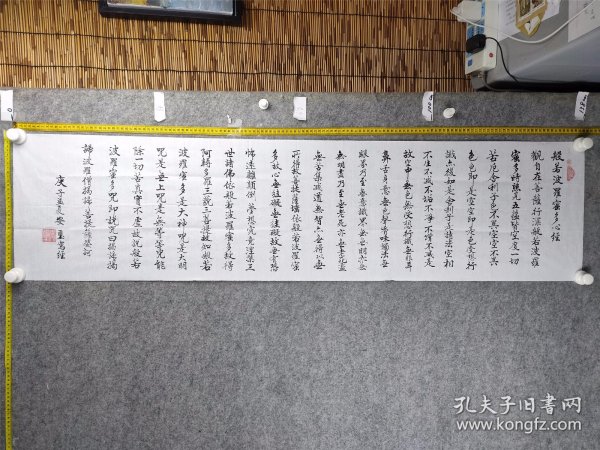 般若波羅蜜多心經
觀自在菩薩行深般若波羅
蜜多時照見五蘊皆空度一切
苦厄舍利子色不異空空不異
色色即是空空即是色受想行
識亦復如是舍利子是諸法空相
不生不滅不垢不淨不增不減是
故空中無色無受想行識無眼耳
鼻舌身意無色聲香味觸法無
眼界乃至無意識界無無明亦無
無明盡乃至無老死亦無老死盡
無苦集滅道無智亦無得以無
所得故菩提薩埵依般若波羅蜜
多故心無罣礙無罣礙故無有恐
怖遠離顛倒夢想究竟涅槃三
世諸佛依般若波羅蜜多故得
阿耨多羅三藐三菩提故知般若
波羅蜜多是大神咒是大明
咒是無上咒是無等等咒能
除一切苦真實不虛故說般若
波羅蜜多咒即說咒曰揭諦揭
諦波羅僧揭諦菩提薩婆訶
庚子孟夏寫經
孔夫子旧书网
www.kongfz.com